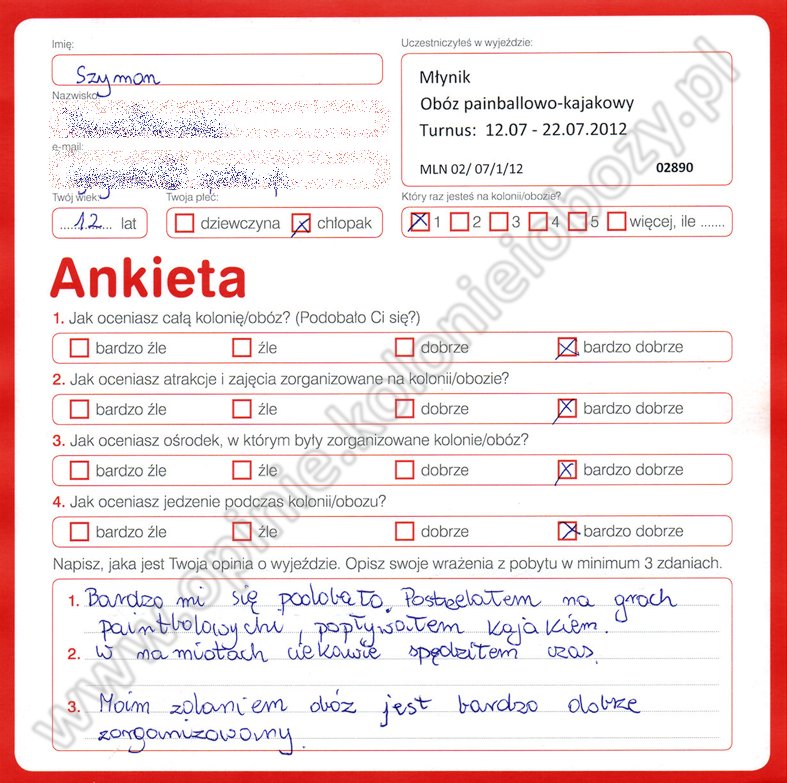 Imię:
Uczestniczyłeś w wyjeździe:
Szymon
Młynik
Obóz painballowo-kajakowy
Turnus: 12.07 - 22.07.2012
MLN 02/ 07/1/12 02890
Nazwisko
e-mail:
Twój wiek:
Twoja płeć:
Który raz jesteś na kolonii/obozie?
.....12.... lat
dziewczyna
chłopak
1 2 3 4 5 więcej, ile .......
Ankieta
1. Jak oceniasz całą kolonię/obóz? (Podobało Ci się?)
bardzo źle źle dobrze bardzo dobrze
2. Jak oceniasz atrakcje i zajęcia zorganizowane na kolonii/obozie?
bardzo źle źle dobrze bardzo dobrze
3. Jak oceniasz ośrodek, w którym były zorganizowane kolonie/obóz?
bardzo źle źle dobrze bardzo dobrze
4. Jak oceniasz jedzenie podczas kolonii/obozu?
bardzo źle źle dobrze bardzo dobrze
Napisz, jaka jest Twoja opinia o wyjeździe. Opisz swoje wrażenia z pobytu w minimum 3 zdaniach.
1. Bardzo mi się podobało. Postzelałem na grach
paintbolowychi, popływałem kajakiem.
2. W namiotach ciekawie spędziłem czas.
3. Moim zdaniem obóz jest bardzo dobrze
zorganizowany.
www.opinie.kolonieiobozy.pl